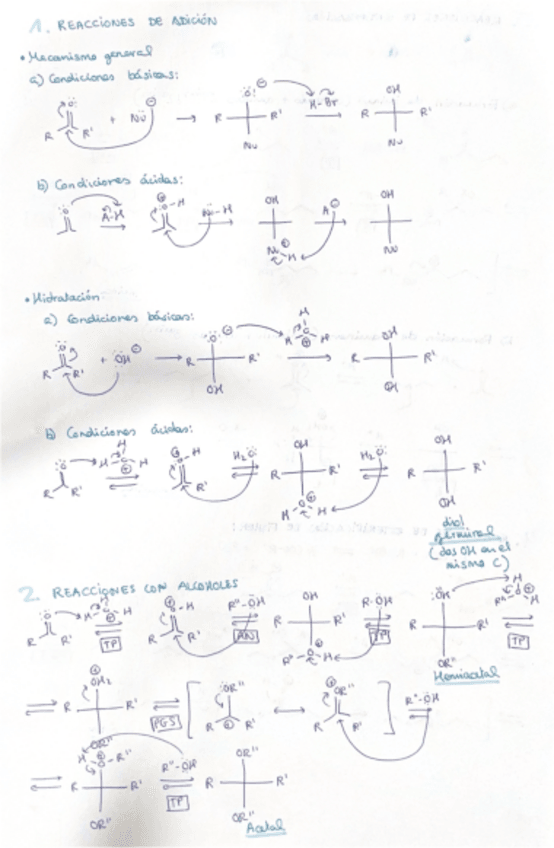 1. REACCIONES DE ADICIÓN
• Mecanismo general
a) Condiciones básicas:
R R' + Nu ⊖ → R R' Nu H-Br → OH R R' Nu
b) Condiciones ácidas:
A-H H Nu-H OH Nu H A ⊖ OH Nu
• Hidratación
a) Condiciones básicas:
R R' + OH ⊖ → R R' OH H H → OH R R' OH
b) Condiciones ácidas:
R R' H H H R' H₂O OH R R' H H H₂O OH R R' OH
diol
geminal
(dos OH en el
mismo C)
2. REACCIONES CON ALCOHOLES
R R' TP H R R' R"-OH AN OH R R' R" H R-OH TP OH R R' OR" TP
Hemiacetal
OH₂ R R' OR" OR" R R' OR" R R' R"-OH
H R" R R' OR" R"-OH TP OR" R R' OR"
Acetal